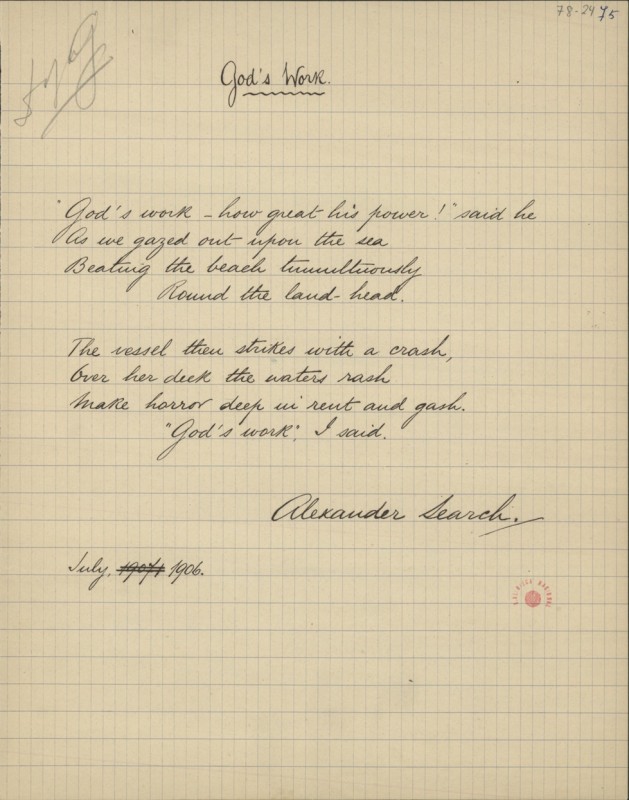 78-24 75
God's Work.
"God's work – how great his power!" said he
As we gazed out upon the sea
Beating the beach tumultuously
Round the land-head.
The vessel then strikes with a crash,
Over her deck the waters rash
Make horror deep in rent and gash.
"God's work", I said.
Alexander Search.
July, 1907 1906.